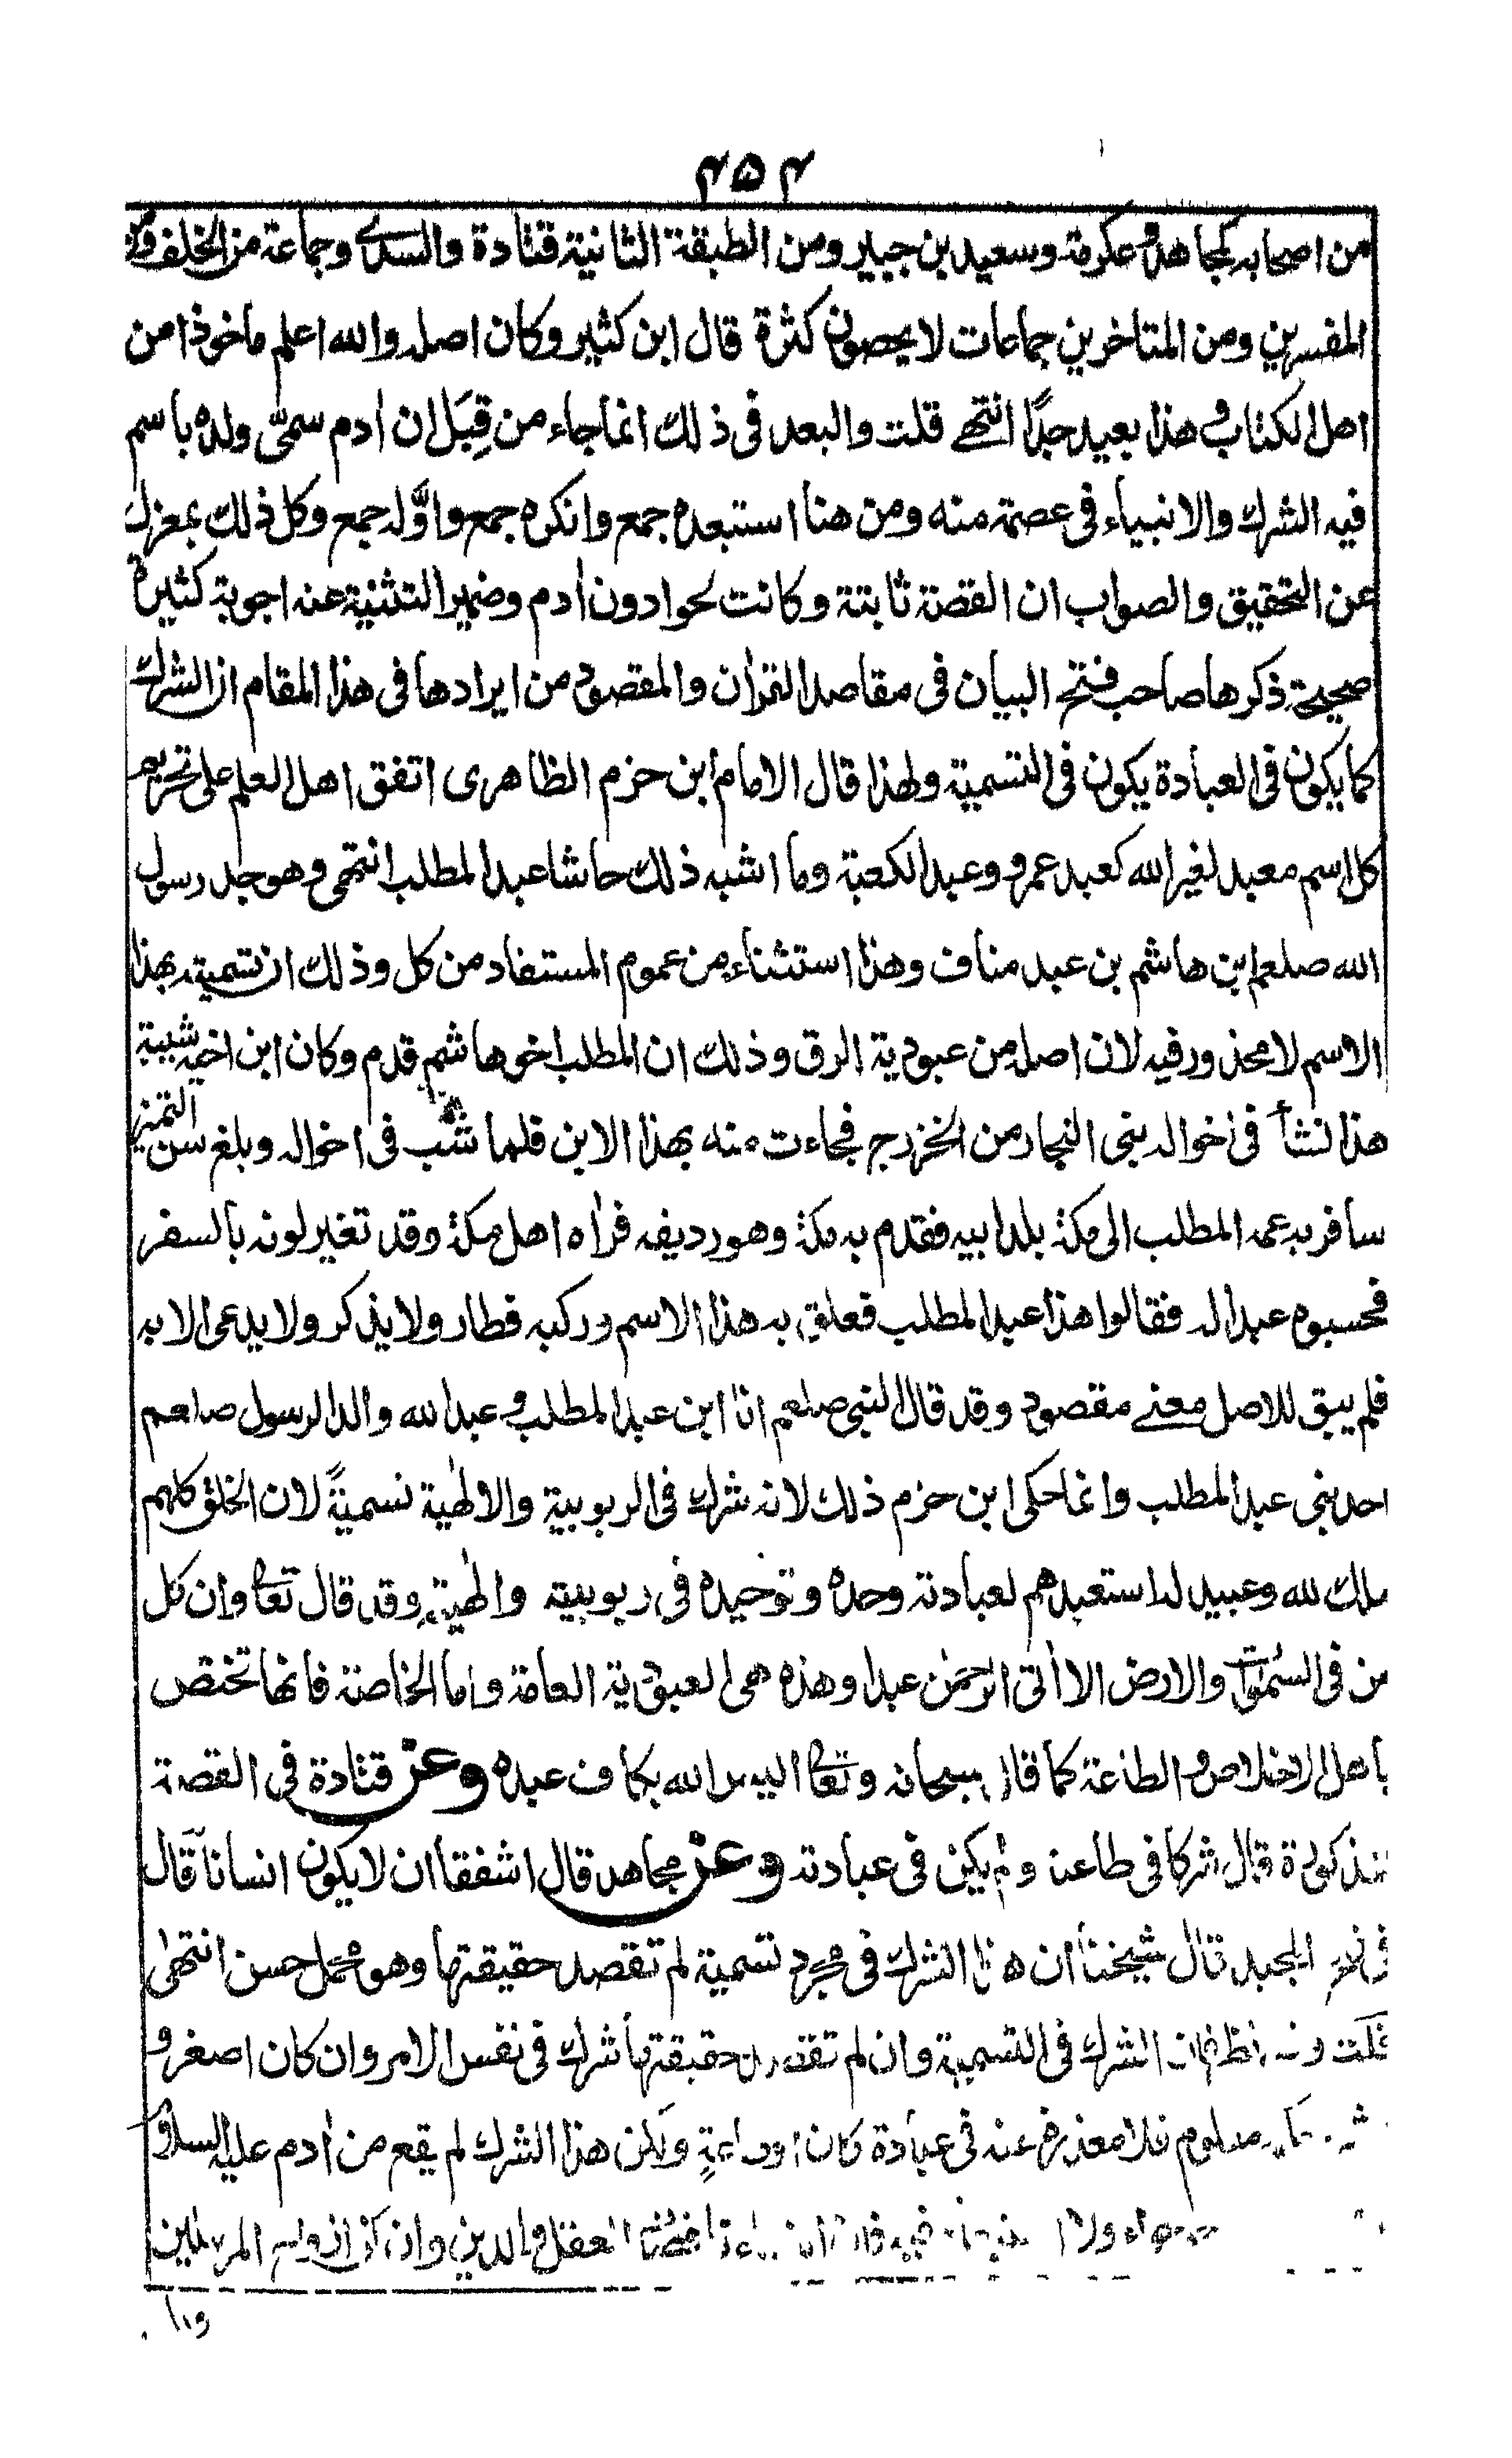 ۴۵۴
من اصحابه كمجاهد وعكرمة وسعيد بن جبير ومن الطبقة الثانية قتادة والسدى وجماعة من الخلف ومن
المفسرين ومن المتاخرين جماعات لا يحصون كثرة قال ابن كثير وكان اصله والله اعلم ماخوذا من
اهل الكتاب وهذا بعيد جدًّا انتهے قلت والبعد فى ذلك انما جاء من قِبَل ان اٰدم سمّى ولده باسم
فيه الشرك والانبياء فى عصمة منه ومن هنا استبعده جمع وانكره جمع واوَّله جمع وكل ذلك بمعزل
عن التحقيق والصواب ان القصة ثابتة وكانت لحوا دون اٰدم وضمير التثنية عنه اجوبة كثيرة
صحيحة ذكرها صاحب فتح البيان فى مقاصد القراٰن والمقصود من ايرادها فى هذا المقام ان الشرك
كما يكون فى العبادة يكون فى التسمية ولهذا قال الامام ابن حزم الظاهرى اتفق اهل العلم على تحريم
كل اسم معبد لغير الله كعبد عمرو وعبد الكعبة وما اشبه ذلك حاشا عبد المطلب انتهى وهو جد رسول
الله صلعم ابن هاشم بن عبد مناف وهذا استثناء من عموم المستفاد من كل وذلك ان تسميته بهذا
الاسم لا محذور فيه لان اصله من عبودية الرق وذلك ان المطلب اخو هاشم قدم وكان ابن اخيه شيبة
هذا نشأ فى اخواله بنى النجار من الخزرج فجاءت منه بهذا الابن فلما شب فى اخواله وبلغ سن التميز
سافر به عمه المطلب الى مكة بلد ابيه فقدم به مكة وهو رديفه فراٰه اهل مكة وقد تغير لونه بالسفر
فحسبوه عبدا له فقالوا هذا عبد المطلب فعلق به هذا الاسم وركبه فطار ولا يذكر ولا يدعى الا به
فلم يبق للاصل معنے مقصود وقد قال النبى صلعم انا ابن عبد المطلب وعبد الله والد الرسول صلعم
احد بنى عبد المطلب وانما حكى ابن حزم ذلك لانه شرك فى الربوبية والالٰهية تسميةً لان الخلق كلهم
ملك لله وعبيد له استعبدهم لعبادته وحده وتوحيده فى ربوبيته والٰهيته وقد قال تعالى وان كل
من فى السمٰوات والارض الا اٰتى الرحمٰن عبدا وهذه هى العبودية العامة واما الخاصة فانها تختص
باهل الاخلاص والطاعة كما قال سبحانه وتعالى اليس الله بكاف عبده وعن قتادة فى القصة
المذكورة قال شركا فى طاعته ولم يكن فى عبادته وعن مجاهد قال اشفقا ان لا يكون انسانا قال
فى فتح المجيد قال شيخنا ان هذا الشرك فى مجرد تسمية لم تقصد حقيقتها وهو محمل حسن انتهٰى
قلت وفيه نظر فان الشرك فى التسمية وان لم تقصد حقيقتها شرك فى نفس الامر وان كان اصغر و
معلوم فلا معذرة عنه فى عبادة كان ولكن هذا الشرك لم يقع من اٰدم عليه السلام و
حواء ولا العقل والدين وان المرسلين